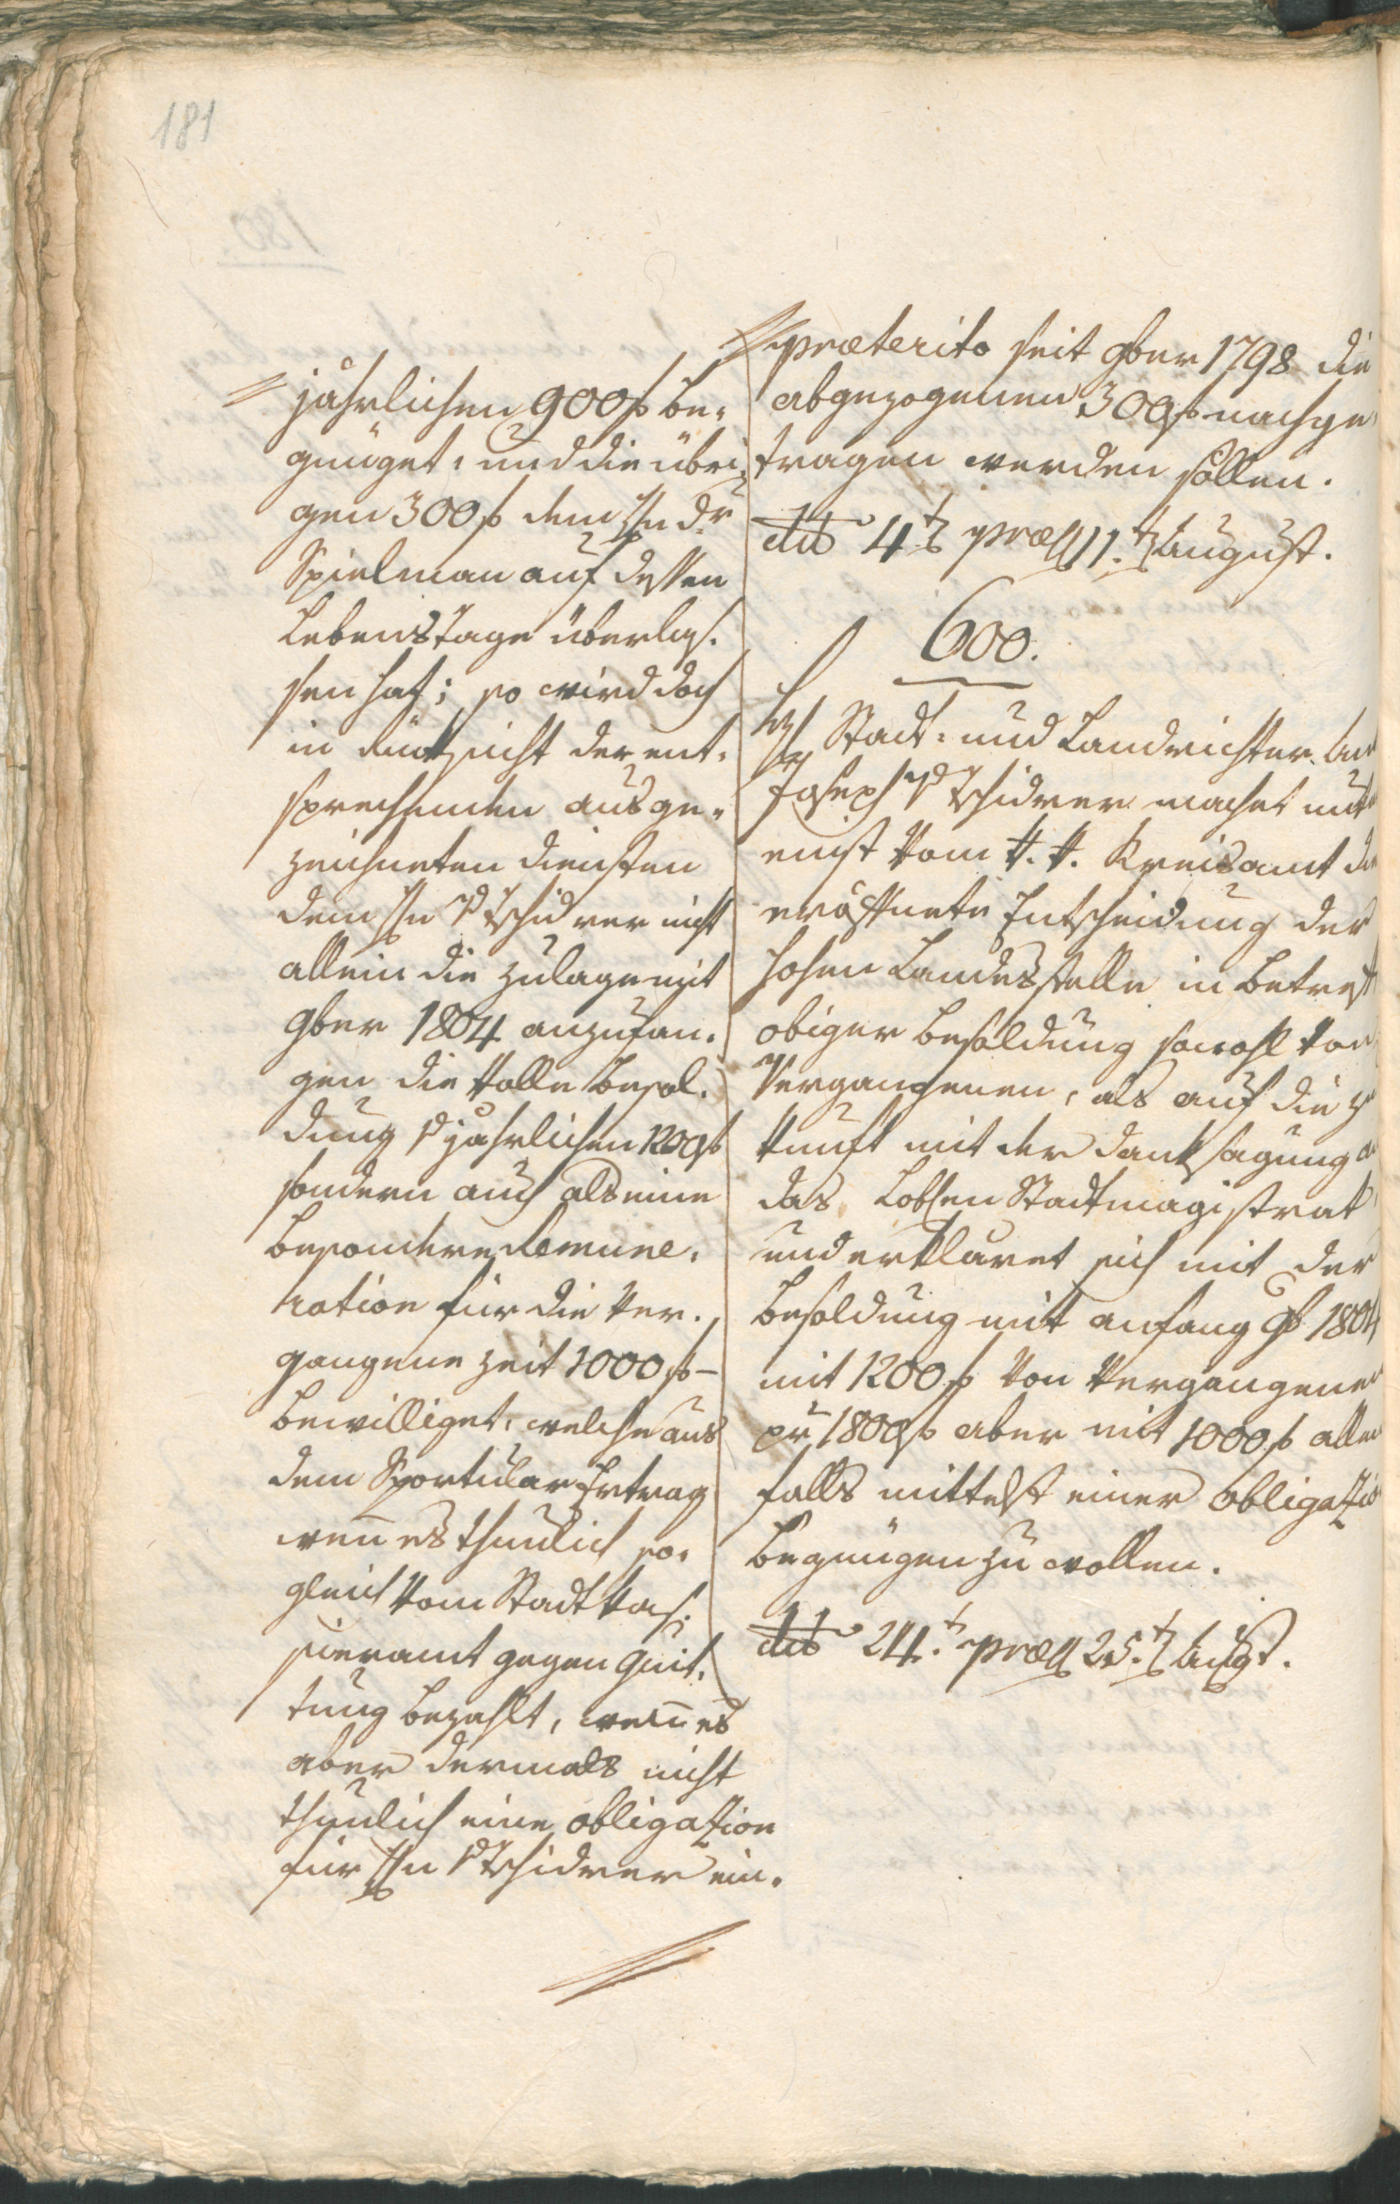 181
jährlichen 900 f be-
gnüget, und die übri-
gen 300 f dem Hn Dr
Spielman auf dessen
Lebenstage überlas-
sen hat; so wird doch
in Rücksicht der ent-
sprechenden ausge-
zeichneten Diensten
dem Hn v Tschidrer nicht
allein die Zulage mit
9ber 1804 anzufan-
gen die volle Besol-
dung v jährlichen 1200 f
sondern auch als eine
besondere Remune-
ration für die ver-
gangene Zeit 1000 f –
bewilliget, welche aus
dem Sportular Ertrag
wen es thunlich so-
gleich vom Stadtkas-
sieramt gegen Quit-
tung bezahlt, wenn es
aber dermals nicht
thunlich eine Obligation
für Hn v Tschidrer ein-
præterito seit 9ber 1798 die
abgezogenen 300 f nachge-
tragen werden sollen.
dto 4t præs 11t August.
600.
Hr Stadt- und Landrichter
Joseph v Tschidrer machet
vom k. k. Kreisamt
eröffnete Entscheidung der
hohen Landesstelle in Betreff
obiger Besoldung sowohl von
Vergangenen, als auf die Zu
kunft mit der Danksagung
das Löblen Stadtmagistrat
und erkläret sich mit der
Besoldung mit anfang 9b 1804
mit 1200 f von Vergangener
pr 1800 f aber mit 1000 f allen
falls mittelst einer Obligatio
begnügen zu wollen.
dto 24t præs 25t Augst.